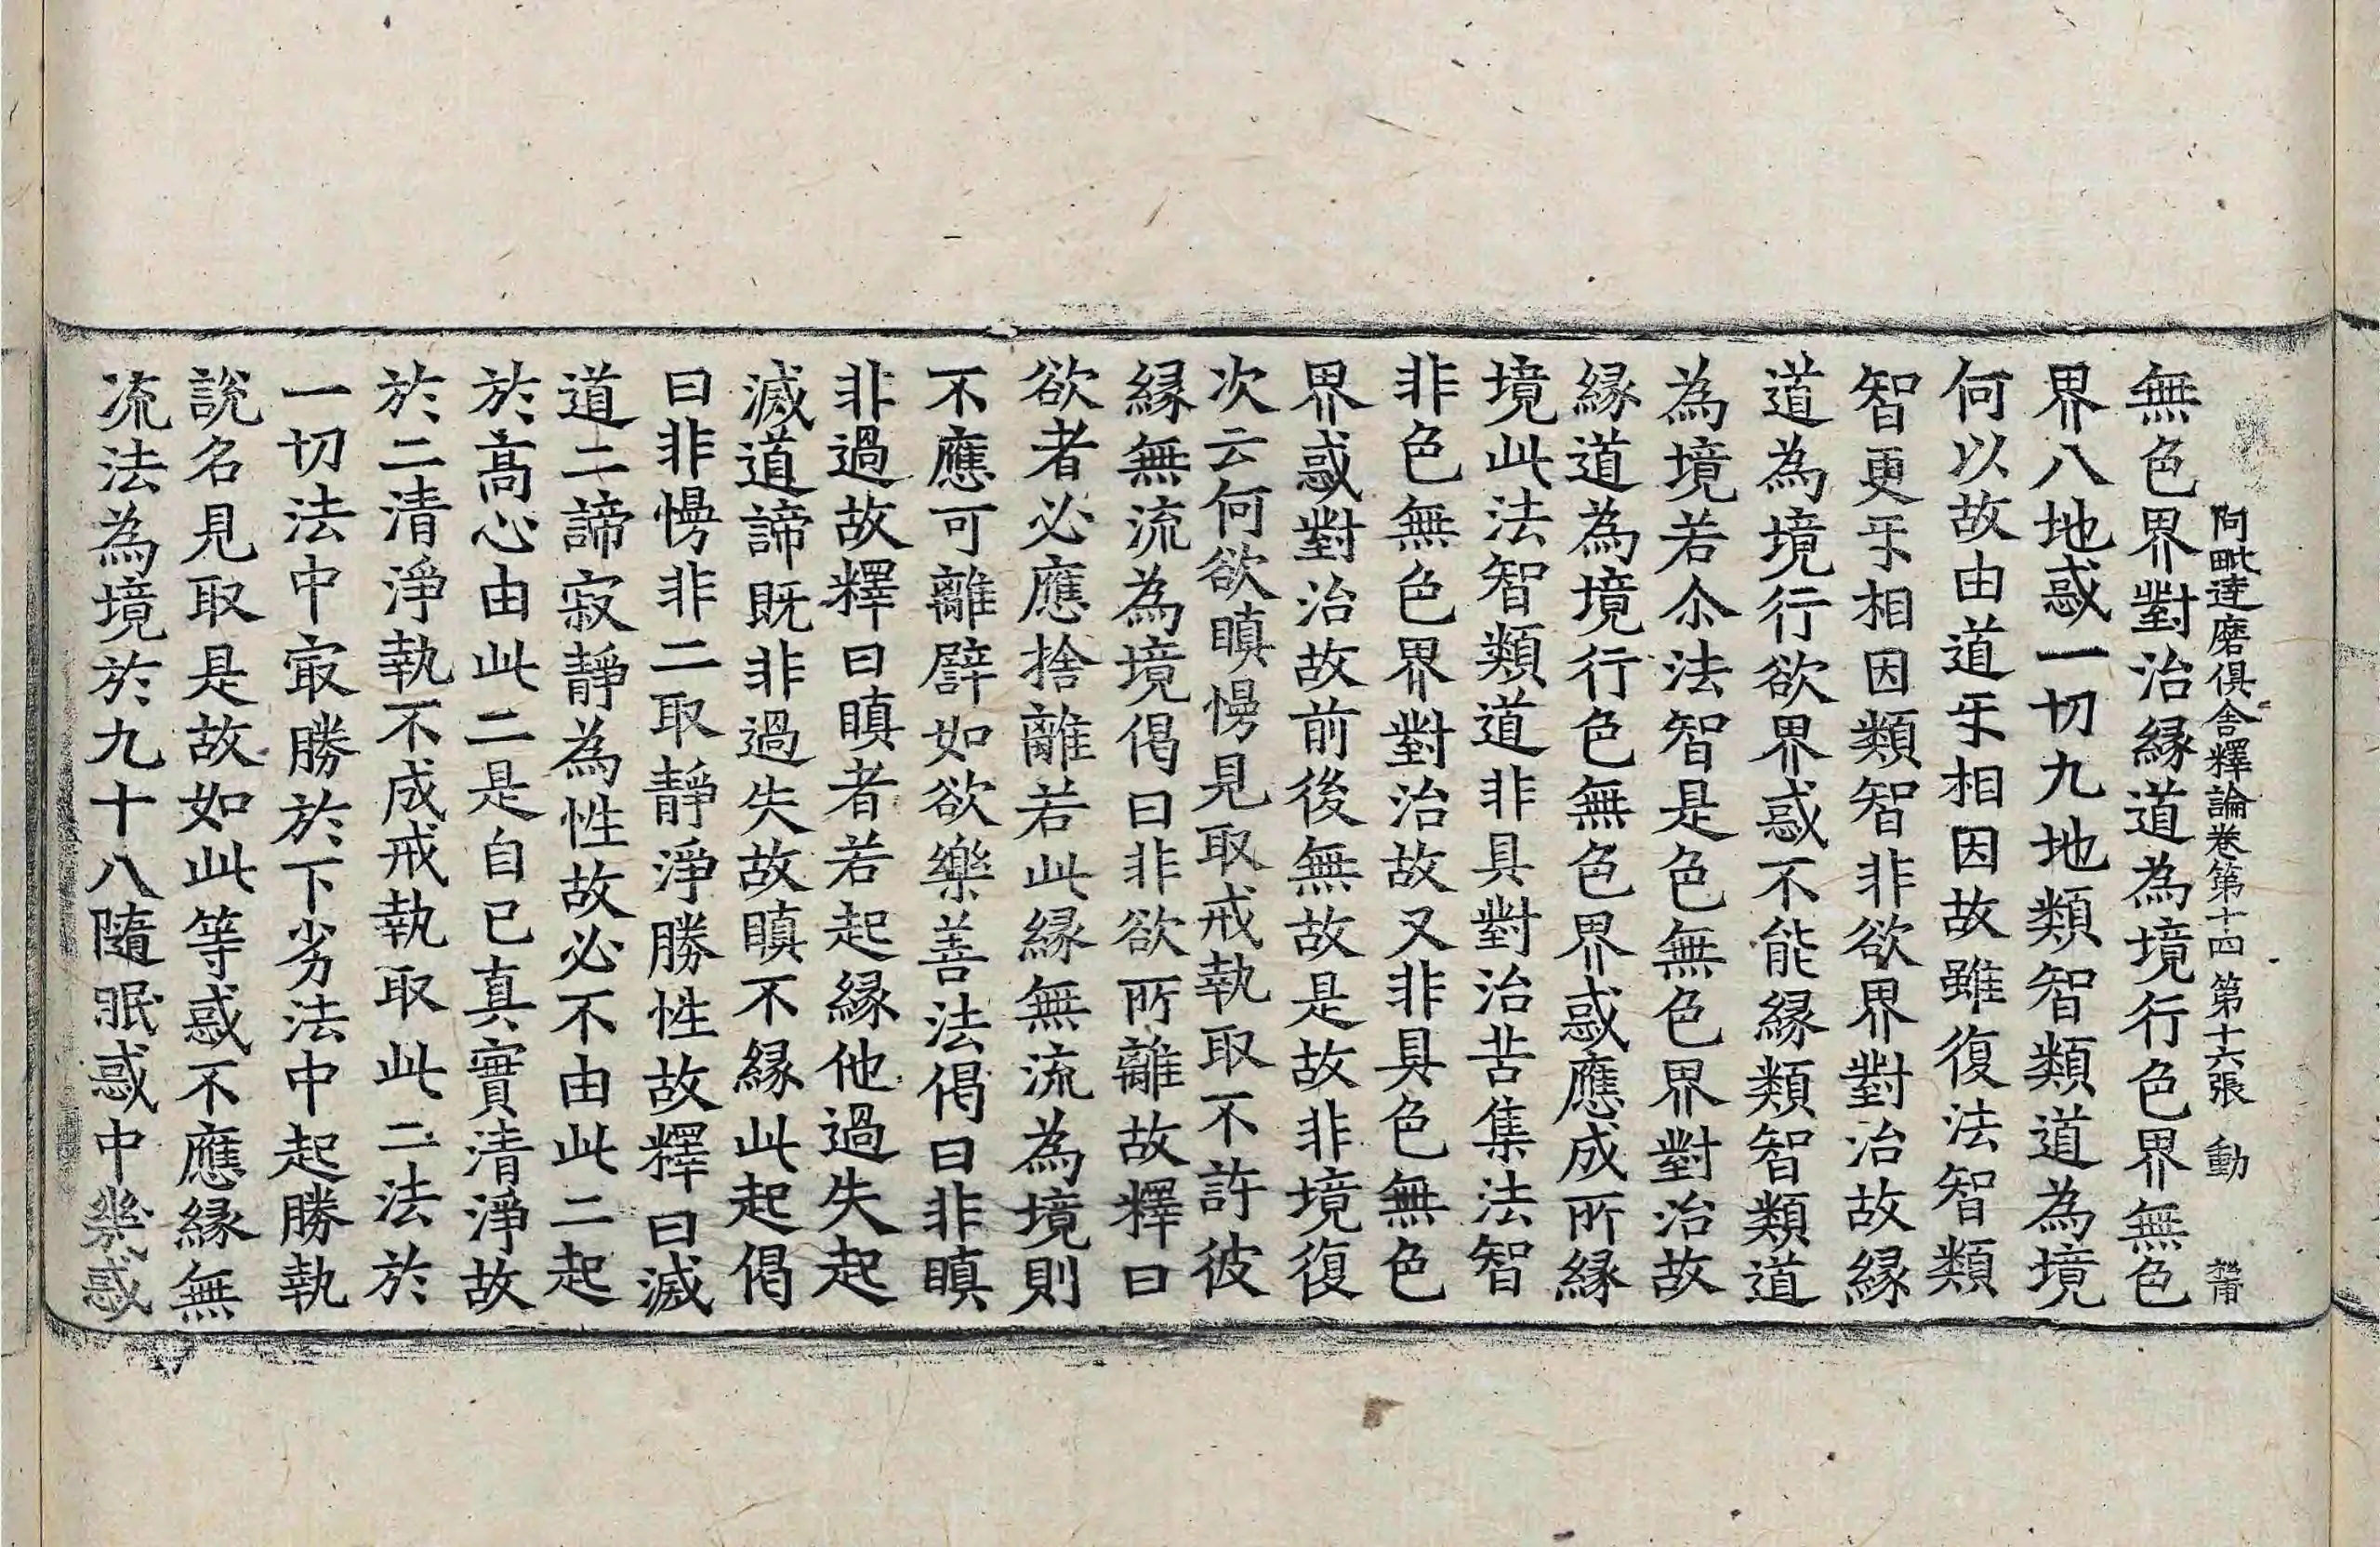 阿毗達磨俱舍釋論卷第十四 第十六張 動
無色界對治緣道為境行色界無色
界八地惑一切九地類智類道為境
何以故由道㸦相因故雖復法智類
智更㸦相因類智非欲界對治故緣
道為境行欲界惑不能緣類智類道
為境若尒法智是色無色界對治故
緣道為境行色無色界惑應成所緣
境此法智類道非具對治苦集法智
非色無色界對治故又非具色無色
界惑對治故前後無故是故非境復
次云何欲瞋慢見取戒執取不許彼
緣無流為境偈曰非欲所離故釋曰
欲者必應捨離若此緣無流為境則
不應可離譬如欲樂善法偈曰非瞋
非過故釋曰瞋者若起緣他過失起
滅道諦既非過失故瞋不緣此起偈
曰非慢非二取靜淨勝性故釋曰滅
道二諦寂靜為性故必不由此二起
於髙心由此二是自已真實清淨故
於二清淨執不成戒執取此二法於
一切法中㝡勝於下劣法中起勝執
說名見取是故如此等惑不應緣無
流法為境於九十八隨眠惑中幾惑